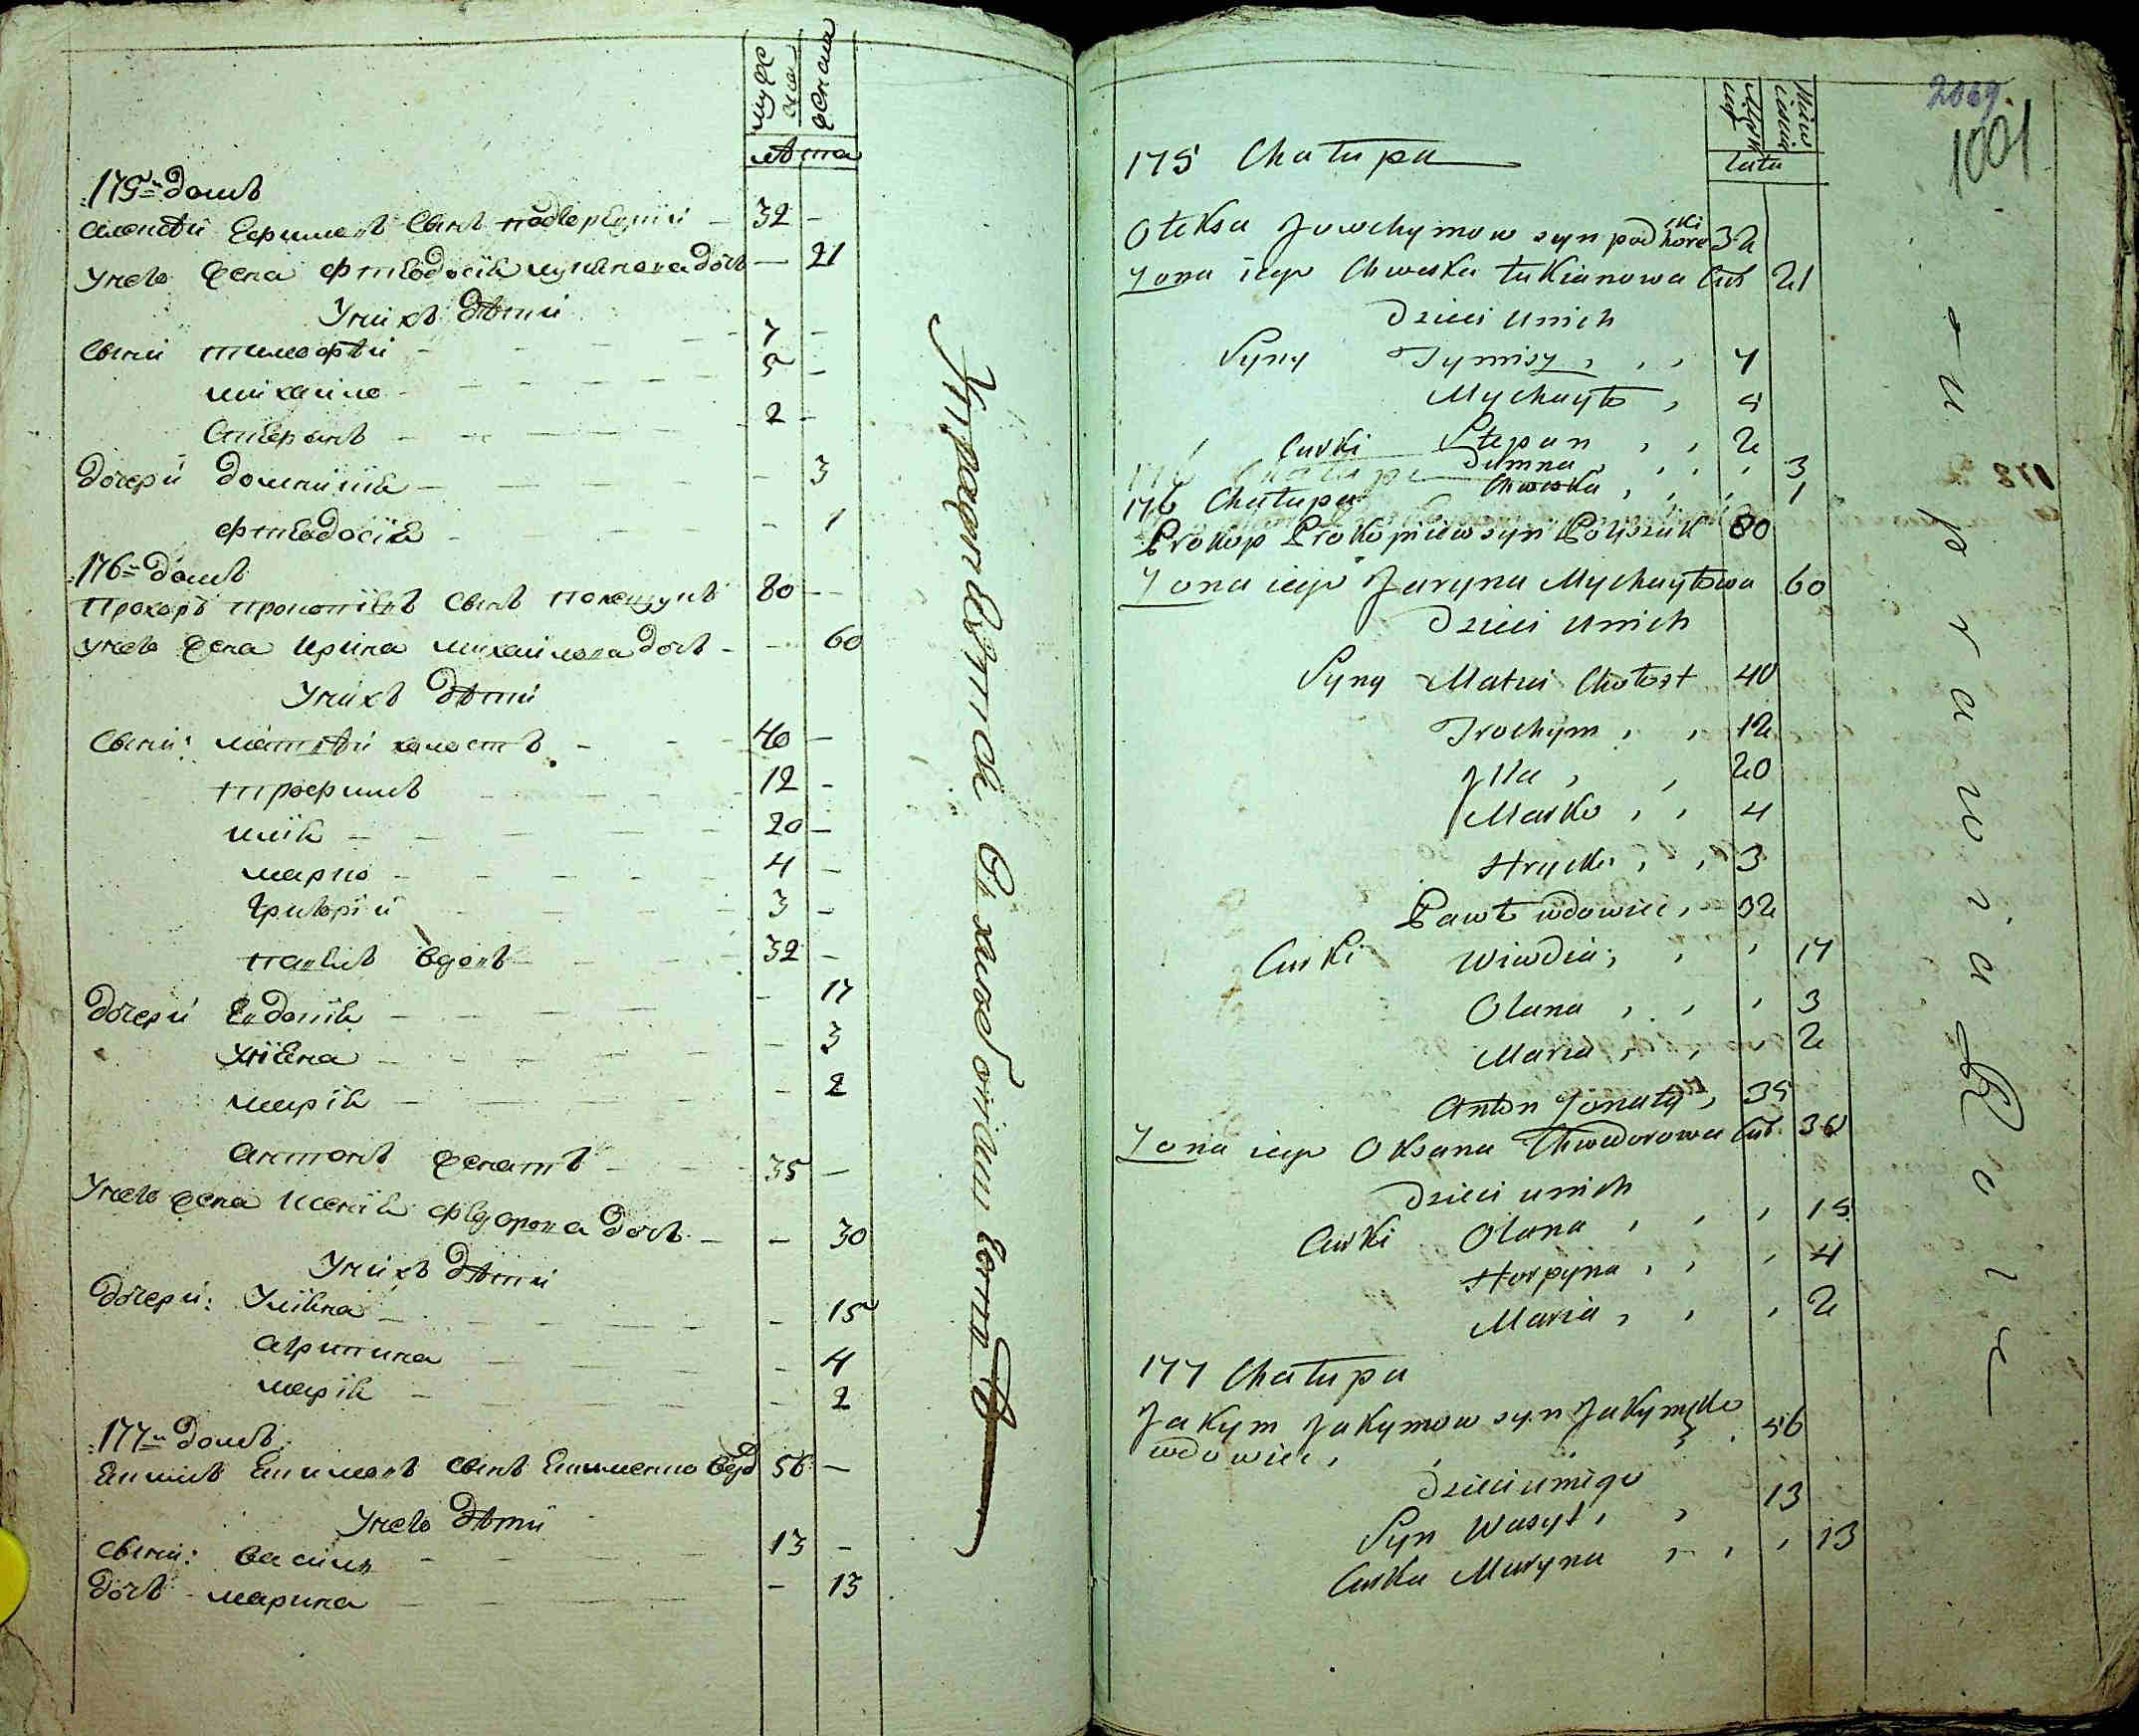 мужеска
женска
лѣта
175й домъ
алексѣй Ефимовъ сынъ подгорскии — 32 —
унего жена фтеодосия лукянова дочь — 21
Унихъ дѣти
Сыни тимофѣй — 7 —
михайло — 5 —
Стефанъ — 2 —
дочери домникия — 3
фтеодосия — 1
176й домъ
Прохоръ прокопiевъ сынъ полещукъ 80 —
унего жена Ирина михайлова дочь — 60
Унихъ дѣти
Сыни: матвѣй холостъ — 40 —
трофимъ 12 —
илия — 20 —
марко — 4 —
григорiй 3 —
павелъ вдовъ — 32 —
дочери Евдокiя — 17
Улiяна — 3
марiя — 2
антонъ женатъ — 35 —
Унего жена ксенiя федорова дочь — 30
Унихъ дѣти
дочери: Улiяна — 15
агрипина — 4
марiя — 2
177й домъ
Екимъ Екимовъ сынъ Екименко вдо 56 —
Унего дѣти
сыни: василъ — 13 —
дочъ марина — 13
Упражняется Въ хлебопашестве
2069.
1001
Męzka
lata
175 Chałupa
Ołeksa Jowchymow syn podhorski 32
Żona iego Chweska Łukianowa Cur 21
Dzieci u nich
Syny Tymisz, , , 7
Mychayło , 5
Stepan , , 2
Curki Dumna , , , , 3
Chweska , , , 1
176 Chałupa
Prokop Prokopiiew syn Poliszuk 80
Żona iego Jaryna Mychayłowa 60
Dzieci u nich
Syny Matwi Chołost 40
Trochym , , 12
Jlia , , 20
Marko , , 4
Hrycko , , 3
Pawło wdowiec, 32
Curki Wiwdia, , , 17
Olana , , , 3
Maria , , , 2
Anton Żonaty , 35
Żona iego Oksana Chwedorowa Cur. 30
Dzieci u nich
Curki Olana , , , 15
Horpyna , , , 4
Maria , , , 2
177 Chałupa
Jakym Jakymow syn Jakymęko
wdowiec, 56
Dzieci u niego
Syn Wasyl, , 13
Curka Maryna , , , 13
uprawia Role